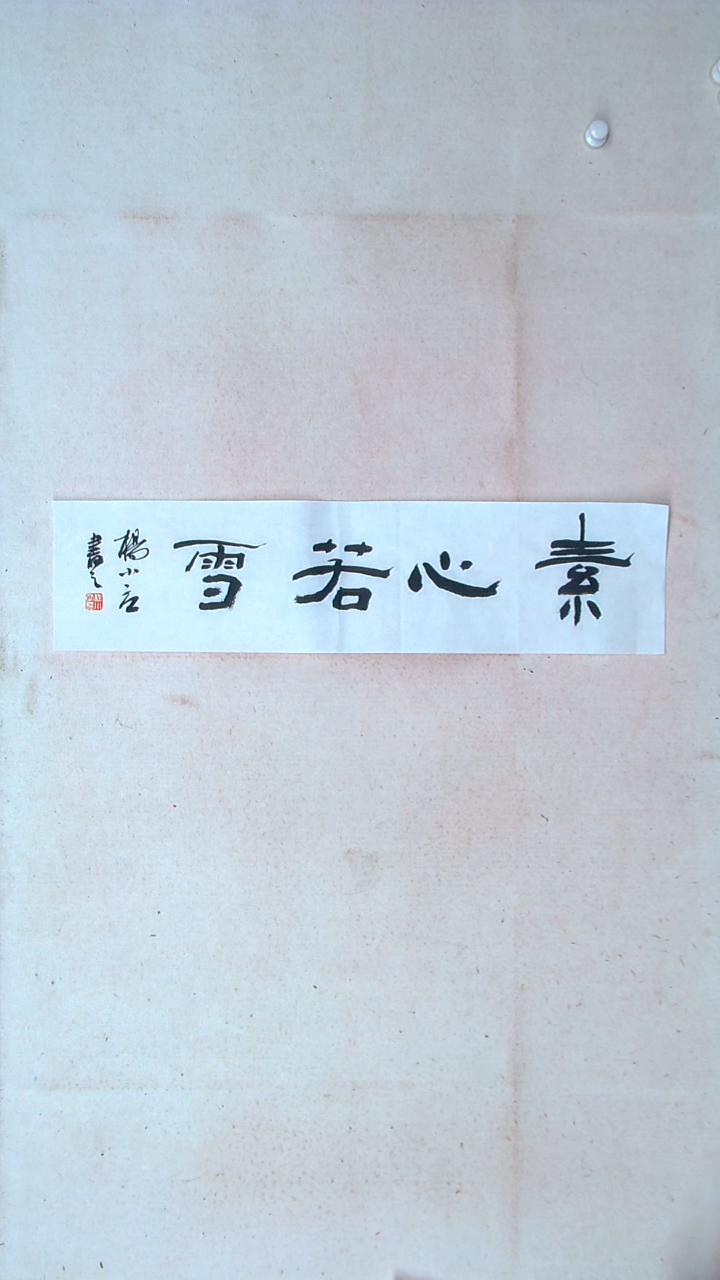 素心若雪
楊小
書之